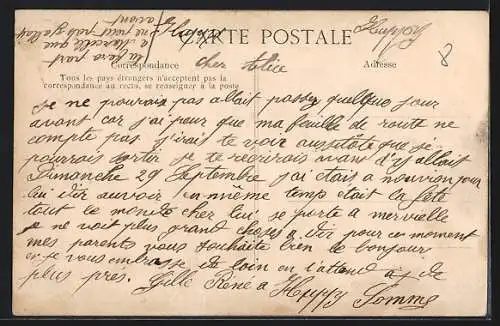 Huppy
CARTE POSTALE
Huppy
tu fera part
a Marcelle que
je ne peux pas y aller
avant
Correspondance
cher Alice
Adresse
8
Tous les pays étrangers n'acceptent pas la
correspondance au recto, se renseigner à la poste
Je ne pourais pas allait passer quelque jour
avant car j'ai peur que ma feuille de route ne
compte pas j'irais te voir aussitôte que je
pourrais sortir je te recrirais avant d'y allait
Dimanche 29 Septembre j'ai était a nouvion pour
lui dir auvoir en même temp était la fête
tout le monde cher lui se porte a mervielle
je ne voit plus grand choses a dir pour ce moment
mes parents vous souhaite bien le bonjour
et je vous embrasse de loin en l'attend de
plus près. René a Huppy Somme